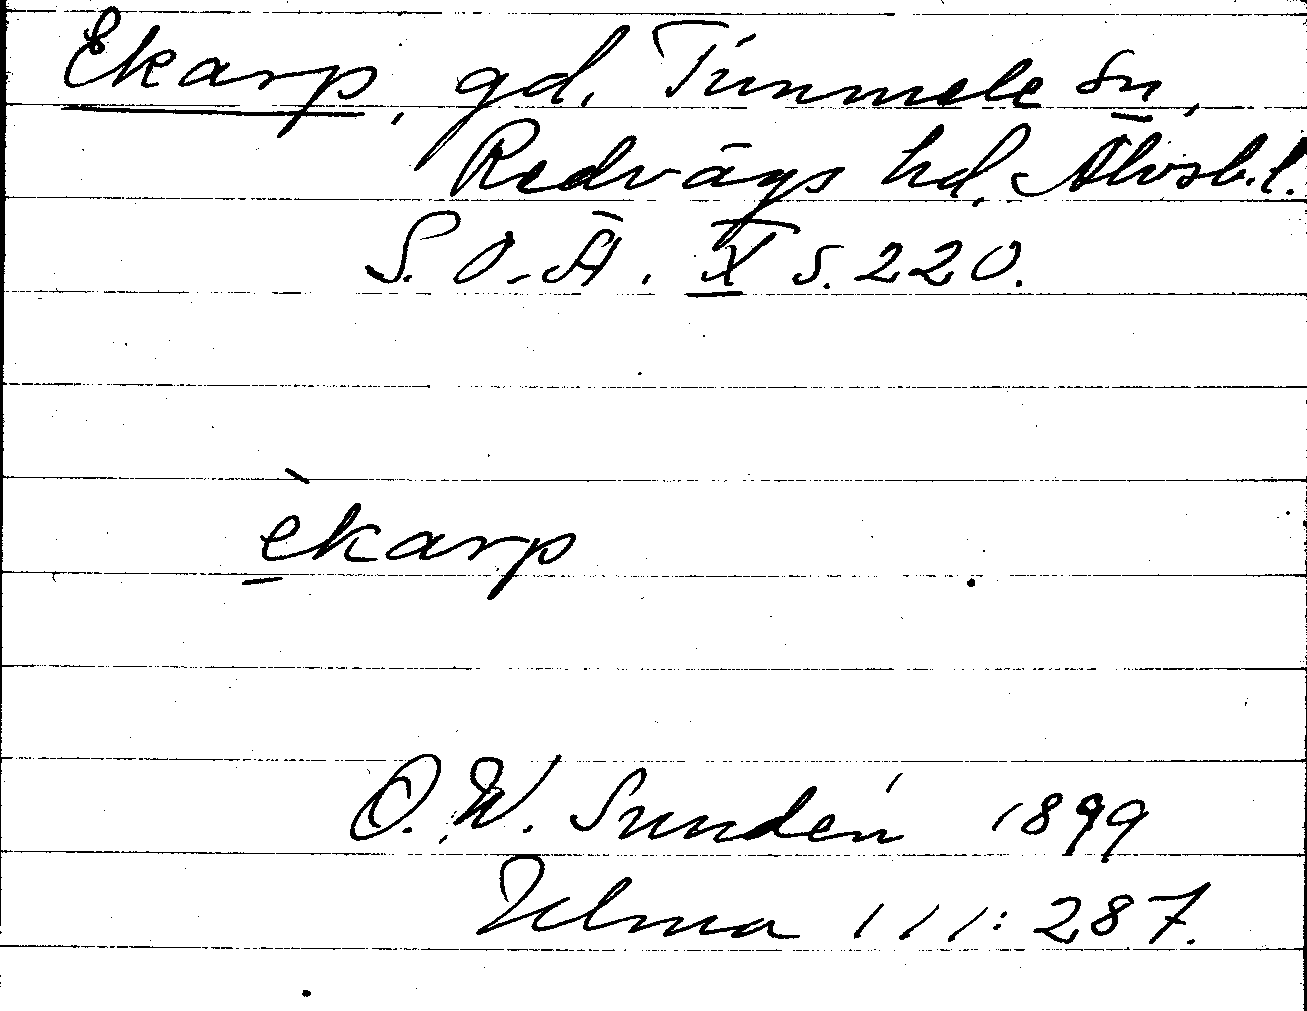 Ekarp, gd. Timmele sn,
Redvägs hd, Älvsb. l.
S. O. Ä. X s. 220.
èkarp
O. W. Sundén 1899
Ulma 111:287.